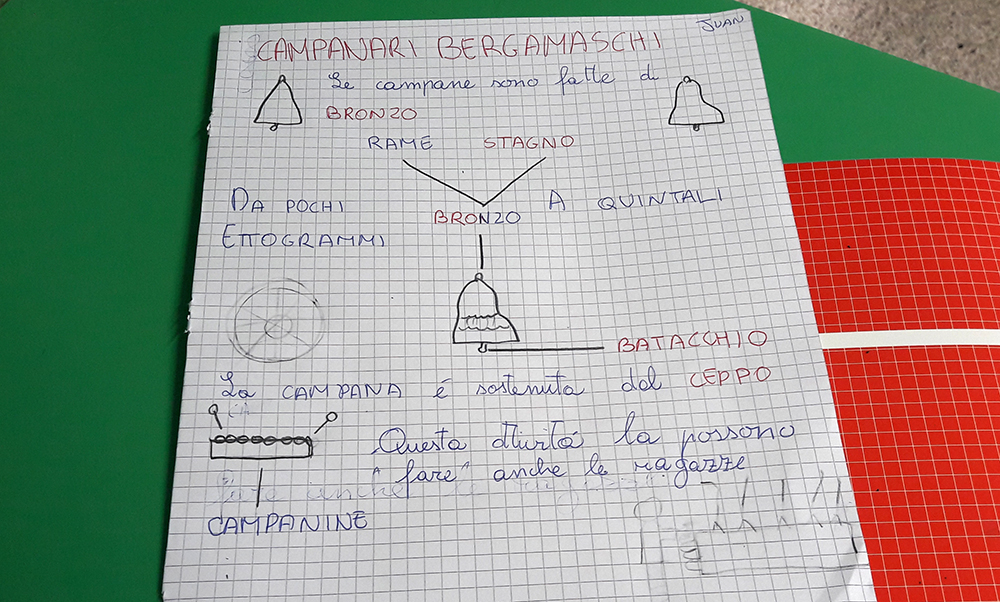 JUAN
CAMPANARI BERGAMASCHI
Le campane sono fatte di
BRONZO
RAME STAGNO
DA POCHI BRONZO A QUINTALI
ETTOGRAMMI
BATACCHIO
La CAMPANA é sostenuta dal CEPPO
Questa attivitá la possono
"fare" anche le ragazze
CAMPANINE